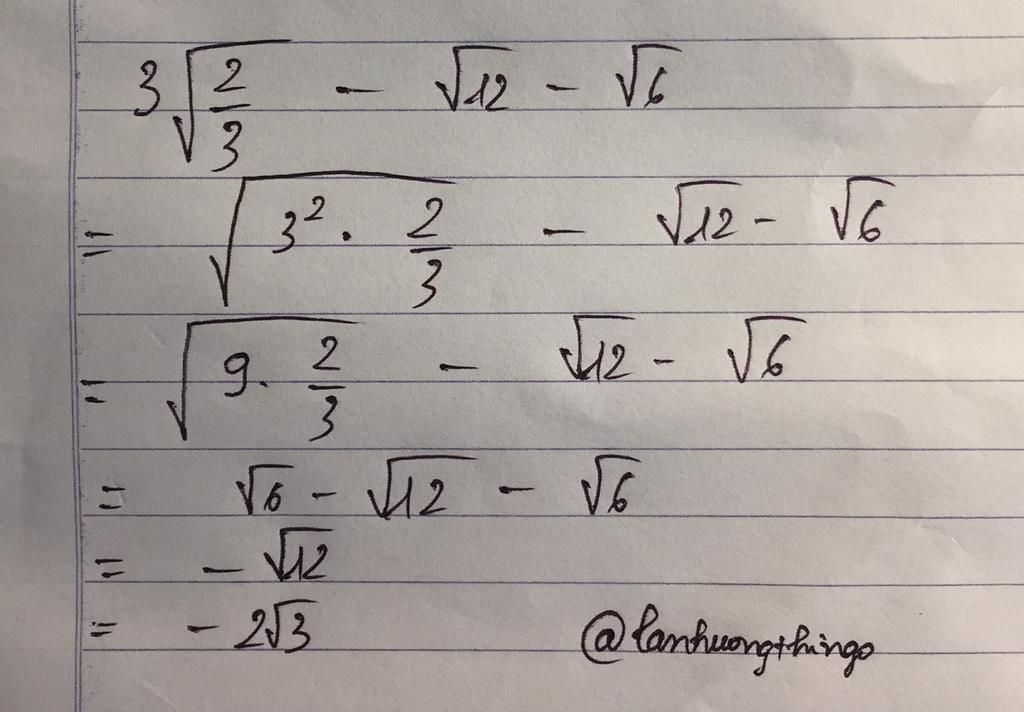 3√(2/3) - √12 - √6
= √(3² · 2/3) - √12 - √6
= √(9 · 2/3) - √12 - √6
= √6 - √12 - √6
= - √12
= - 2√3
@lanhuongthingo